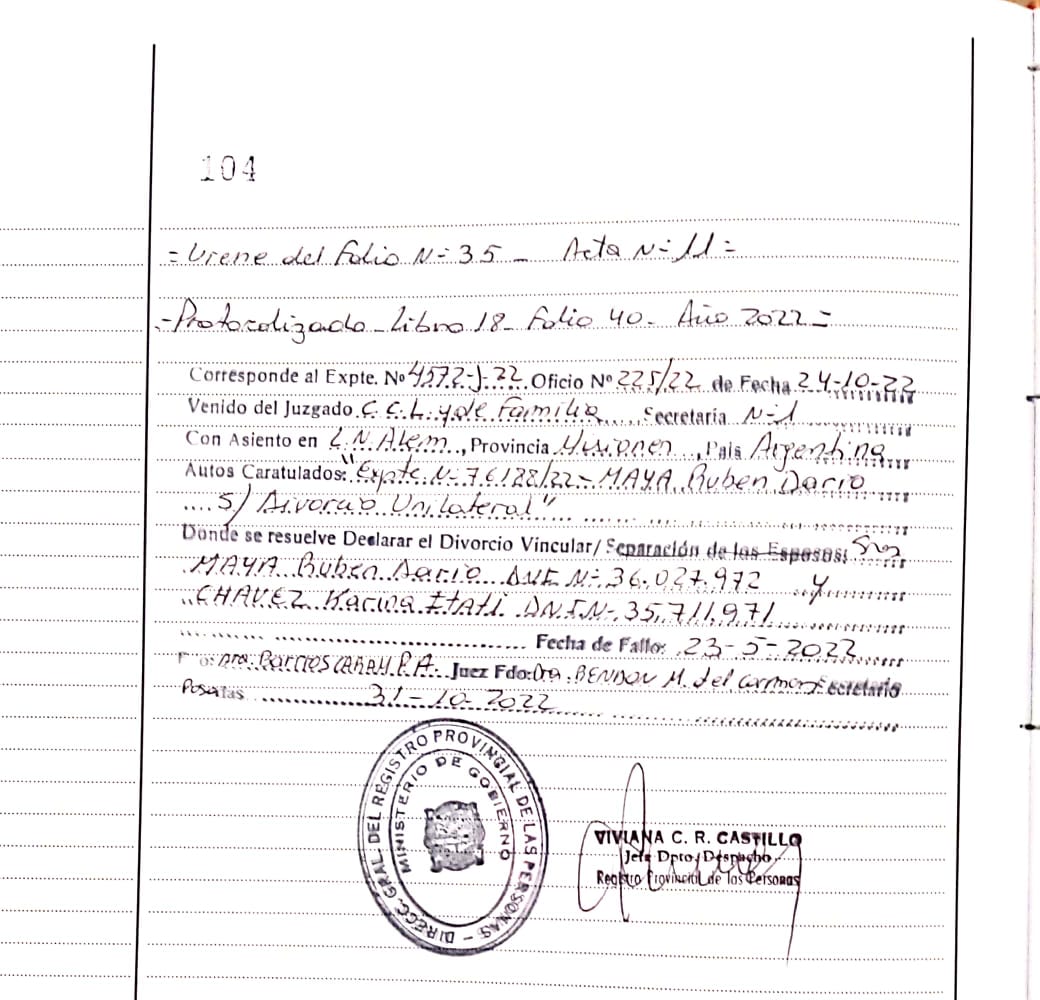 104
= Viene del Folio N= 35 - Acta N= 11 =
-Protocolizado - Libro 18 - Folio 40 - Año 2022 =
Corresponde al Expte. Nº 4572-J-22 Oficio Nº 225/22 de Fecha 24-10-22
Venido del Juzgado C.C.L. y de Familia Secretaria N=1
Con Asiento en L.N. Alem, Provincia Misiones, Pais Argentina
Autos Caratulados: "Expte N= 76128/22 - MAYA Ruben Dario
S/ Divorcio Unilateral"
Donde se resuelve Declarar el Divorcio Vincular/ Separación de los Esposos: Sres
MAYA Ruben Dario DNI N= 36.027.972 y
CHAVEZ Karina Itati DNI N- 35.711.971
Fecha de Fallo: 23-5-2022
Dra. P.A. Juez Fdo: Dra. BENDOV M. del Carmen Secretario
Posadas 31-10-2022
DIRECC. GRAL. DEL REGISTRO PROVINCIAL DE LAS PERSONAS -
MINISTERIO DE GOBIERNO
VIVIANA C. R. CASTILLO
Jefa Dpto. Despacho
Registro Provincial de las Personas